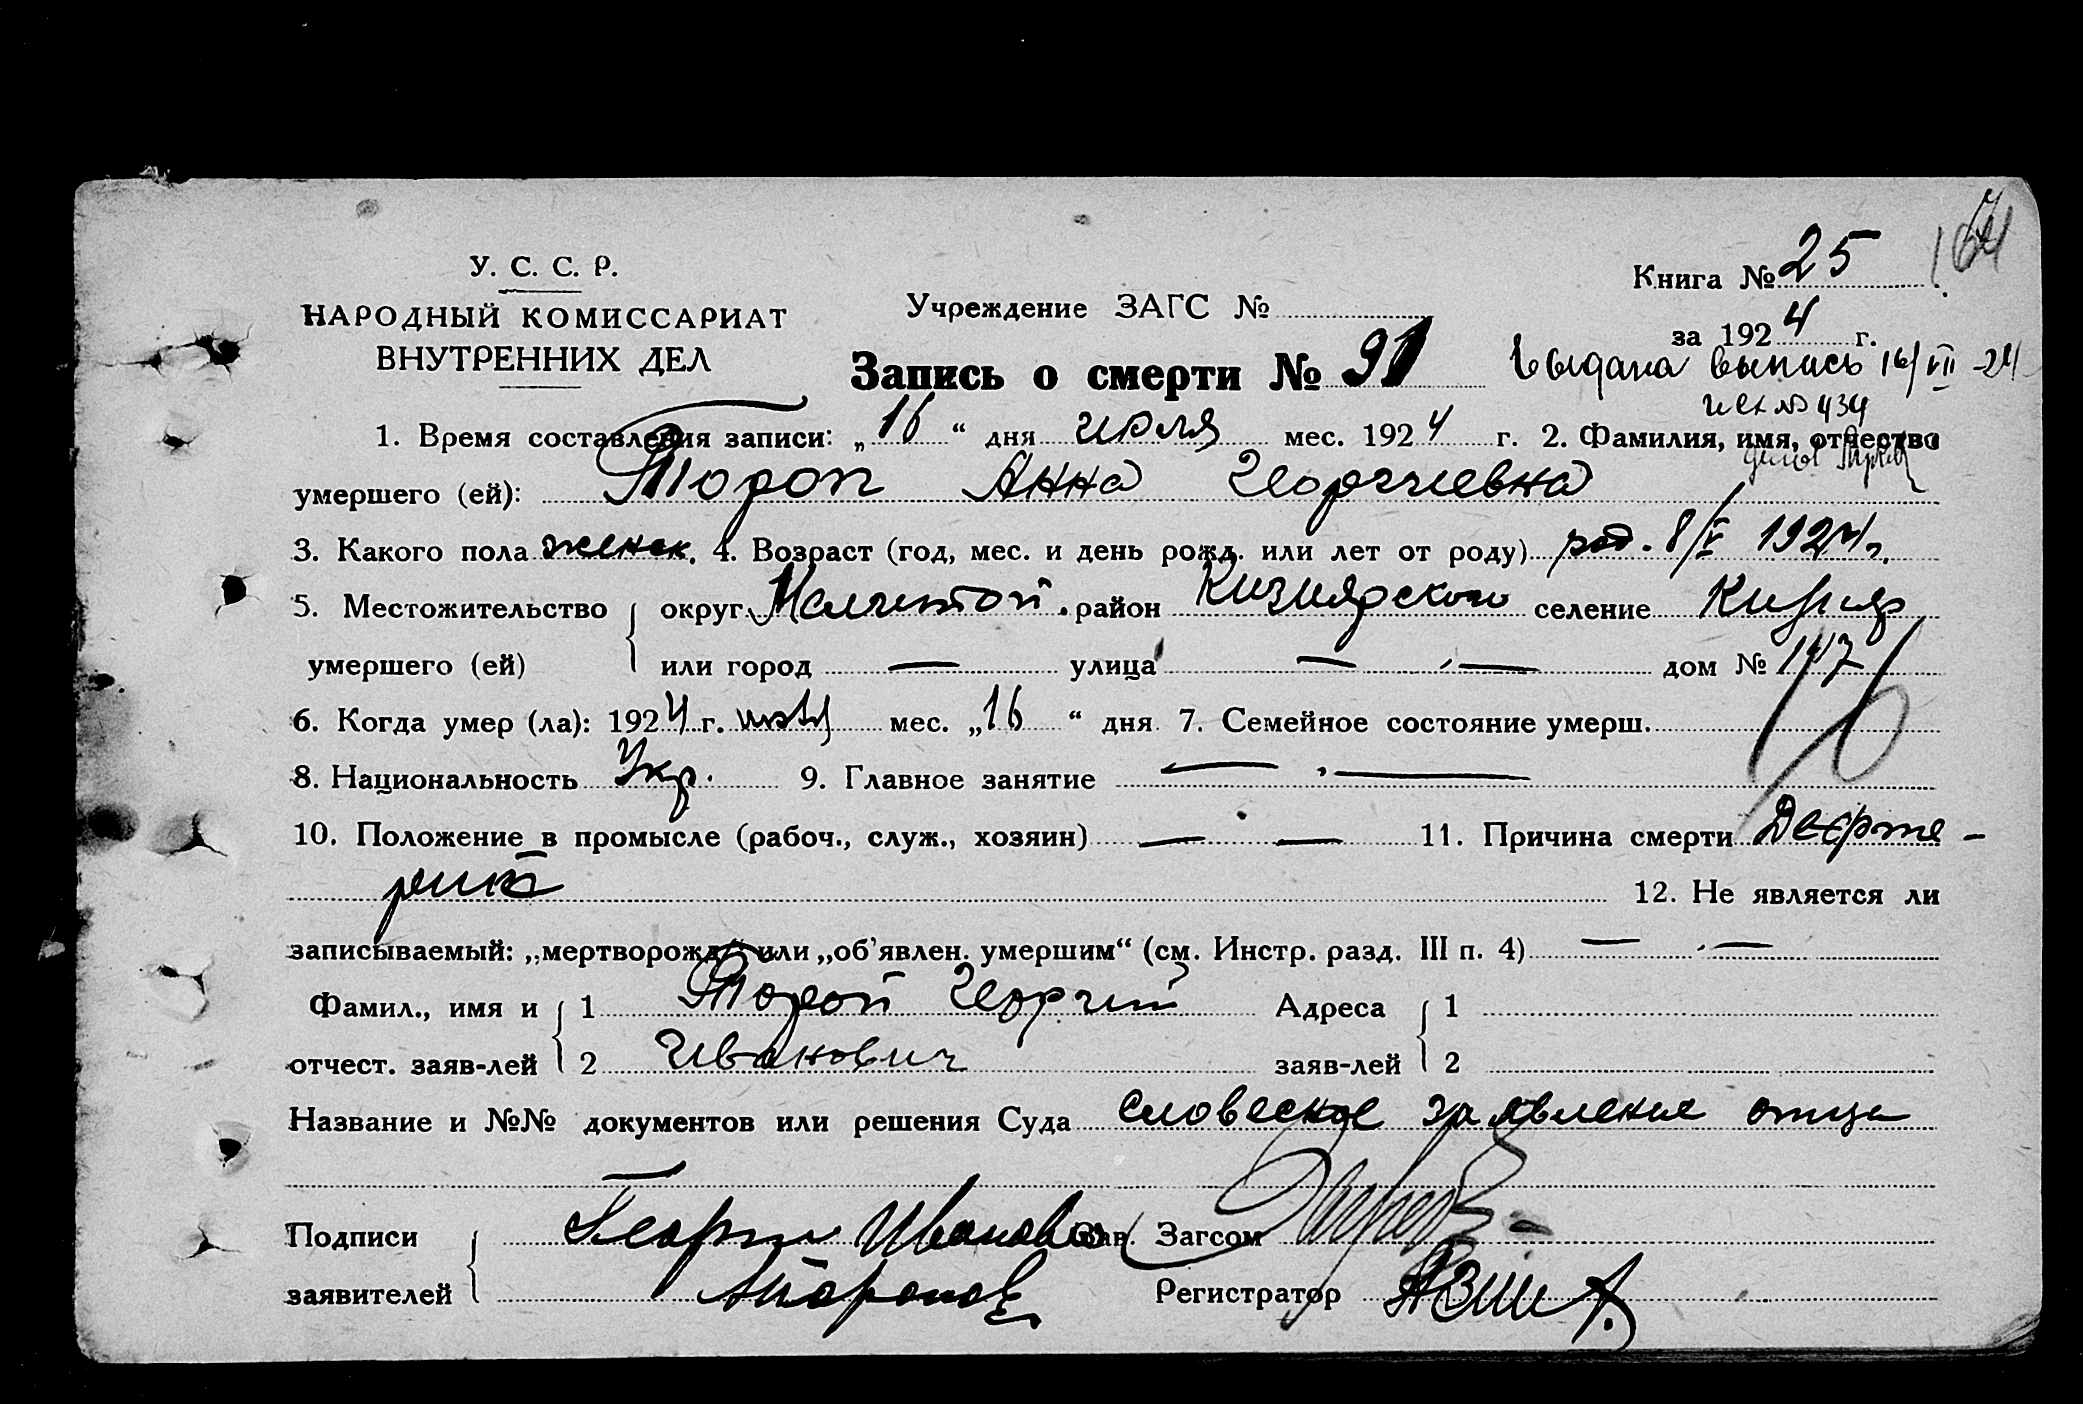 У. С. С. Р.
НАРОДНЫЙ КОМИССАРИАТ
ВНУТРЕННИХ ДЕЛ
Книга № 25
за 1924 г.
Учреждение ЗАГС №
Запись о смерти № 91
Выдана выпись 16/VII -24
исх № 434
1. Время составления записи: „16“ дня июля мес. 1924 г. 2. Фамилия, имя, отчество
умершего (ей): Тороп Анна Георгиевна
3. Какого пола женск. 4. Возраст (год, мес. и день рожд. или лет от роду) род. 8/V 1924 г.
5. Местожительство округ Мелитоп. район Кизиярского селение Кизияр
умершего (ей) или город — улица — — дом № 147
6. Когда умер (ла): 1924 г. июля мес. „16“ дня 7. Семейное состояние умерш.
8. Национальность Укр. 9. Главное занятие — —
10. Положение в промысле (рабоч., служ., хозяин) — — 11. Причина смерти
12. Не является ли
записываемый: „мертворожд.“ или „об'явлен. умершим“ (см. Инстр. разд. III п. 4) — —
Фамил., имя и 1 Тороп Георгий Адреса 1
отчест. заяв-лей 2 Иванович заяв-лей 2
Название и №№ документов или решения Суда словесное заявление отца
Подписи Георги Иванови Зав. Загсом
заявителей Регистратор